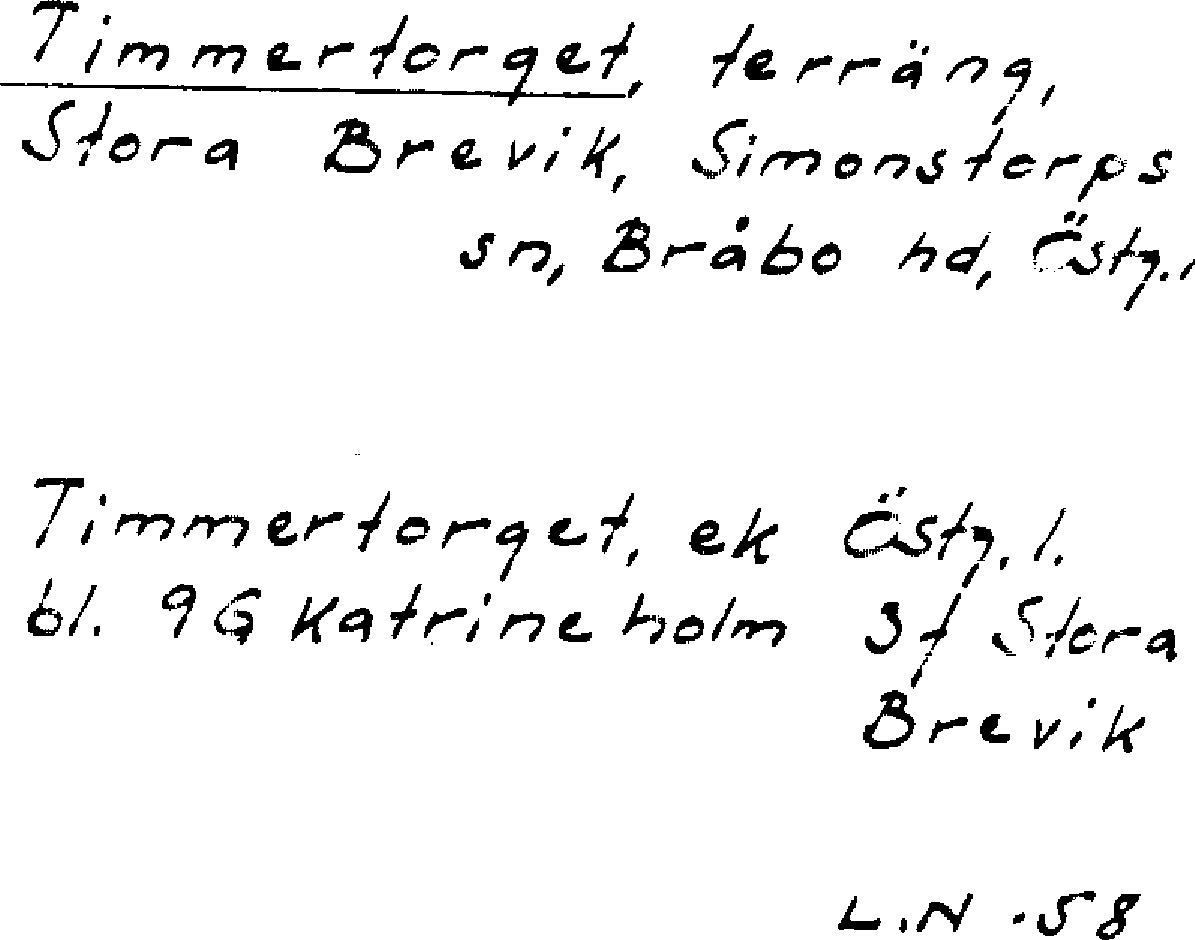 Timmertorget, terräng,
Stora Brevik, Simonstorps
sn, Bråbo hd, Östg.,
Timmertorget, ek Östg. l.
bl. 9G Katrineholm 3f Stora
Brevik
L.N -58